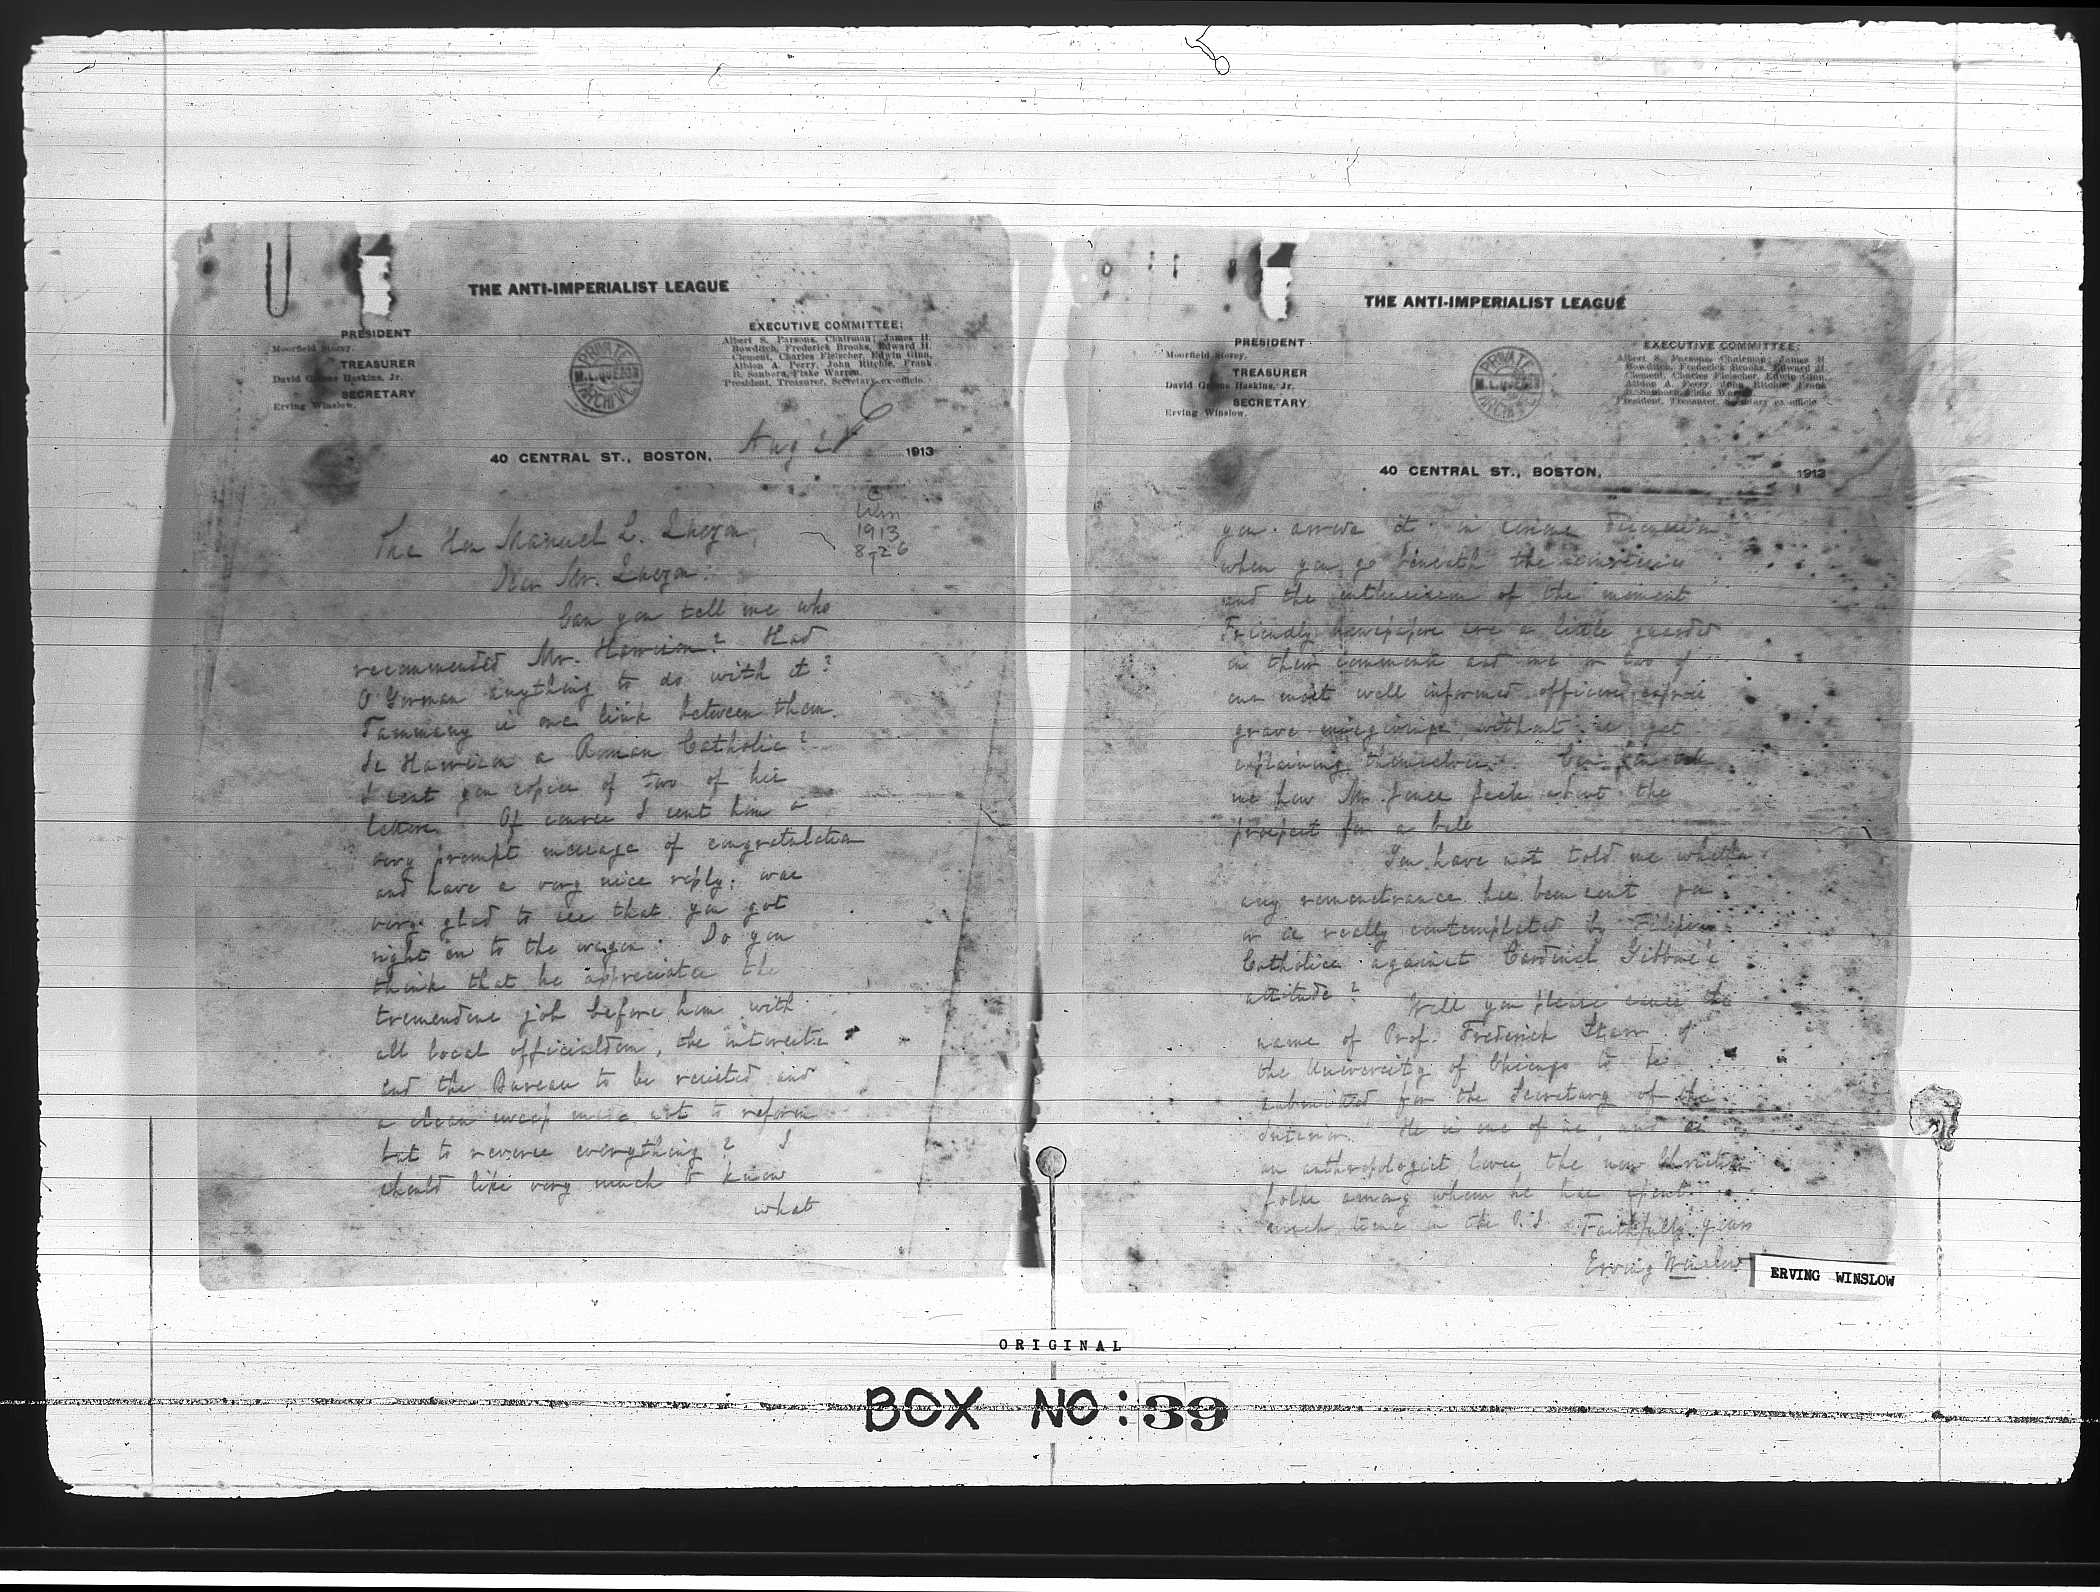 THE ANTI-IMPERIALIST LEAGUE
PRESIDENT
Moorfield Storey.
TREASURER
David Greene Haskins, Jr.
SECRETARY
Erving Winslow.
PRIVATE
M.L.QUEZON
ARCHIVE
EXECUTIVE COMMITTEE:
Albert S. Parsons, Chairman; James H.
Bowditch, Frederick Brooks, Edward H.
Clement, Charles Fleischer, Edwin Ginn,
Albion A. Perry, John Ritchie, Frank
B. Sanborn, Fiske Warren.
President, Treasurer, Secretary ex-officio.
6
40 CENTRAL ST., BOSTON, Aug 1913
1913
8-26
The Hon Manuel L. Quezon,
Dear Mr. Quezon:
Can you tell me who
recommended Mr. Harrison? Had
O'Gorman anything to do with it?
Tammany is one link between them.
Is Harrison a Roman Catholic?
I sent you copies of two of his
letters. Of course I sent him a
very prompt message of congratulation
and have a very nice reply; was
very glad to see that you got
right on to the wagon. Do you
think that he appreciates the
tremendous job before him with
all local officialdom, the interests
and the Bureau to be resisted and
a clean sweep made not to reform
but to reverse everything? I
should like very much to know
what
THE ANTI-IMPERIALIST LEAGUE
PRESIDENT
Moorfield Storey.
TREASURER
David Greene Haskins, Jr.
SECRETARY
Erving Winslow.
PRIVATE
M.L.QUEZON
ARCHIVE
EXECUTIVE COMMITTEE:
Albert S. Parsons, Chairman; James H.
Bowditch, Frederick Brooks, Edward H.
Clement, Charles Fleischer, Edwin Ginn,
Albion A. Perry, John Ritchie, Frank
B. Sanborn, Fiske Warren.
President, Treasurer, Secretary ex-officio.
40 CENTRAL ST., BOSTON, 1913
you arrive at in
when you go beneath the
and the enthusiasm of the moment
Friendly newspapers are a little guarded
in their comments and one or two of
our most well informed officers express
grave misgivings without as yet
explaining themselves. Can you tell
me how Mr. Jones feels about the
prospect for a bill
You have not told me whether
any remonstrance has been sent you
or is really contemplated by Filipino
Catholics against Cardinal Gibbons's
attitude?
Will you please cause the
name of Prof. Frederick Starr of
the University of Chicago to be
submitted for the Secretary of the
Interior. He is one of us, and as
an anthropologist loves the non Christian
folks among whom he has spent
much time in the P.I. Faithfully yours
Erving Winslow
ERVING WINSLOW
ORIGINAL
BOX NO: 39